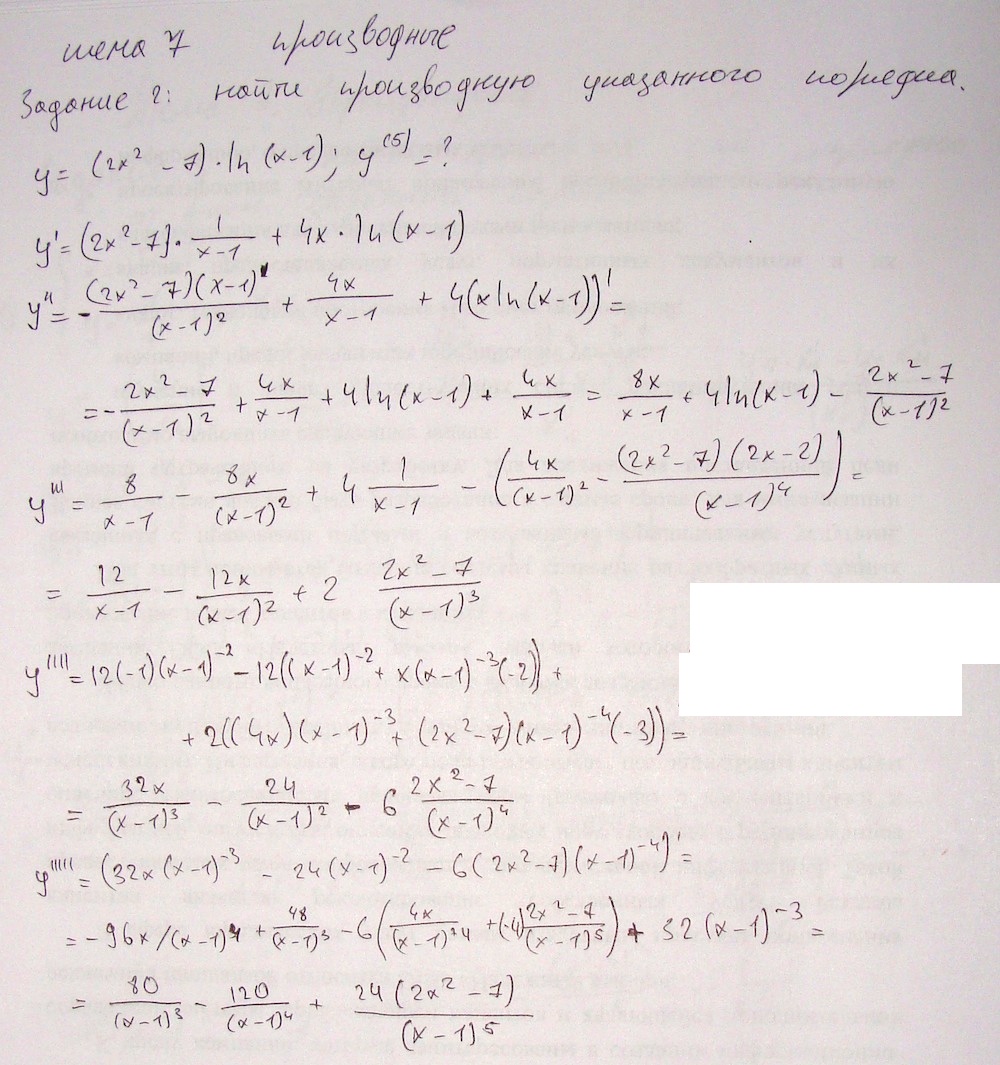 тема 7 производные
Задание 2: найти производную указанного порядка.
y = (2x² - 7) · ln (x-1); y⁽⁵⁾ = ?
y' = (2x² - 7) · 1/(x-1) + 4x · ln (x-1)
y'' = - (2x² - 7)(x-1)'/(x-1)² + 4x/(x-1) + 4(x ln (x-1))' =
= - (2x² - 7)/(x-1)² + 4x/(x-1) + 4 ln (x-1) + 4x/(x-1) = 8x/(x-1) + 4 ln (x-1) - (2x² - 7)/(x-1)²
y''' = 8/(x-1) - 8x/(x-1)² + 4 1/(x-1) - (4x/(x-1)² - (2x² - 7)(2x-2)/(x-1)⁴) =
= 12/(x-1) - 12x/(x-1)² + 2 (2x² - 7)/(x-1)³
y'''' = 12(-1)(x-1)⁻² - 12((x-1)⁻² + x(x-1)⁻³(-2)) +
+ 2((4x)(x-1)⁻³ + (2x² - 7)(x-1)⁻⁴(-3)) =
= 32x/(x-1)³ - 24/(x-1)² - 6 (2x² - 7)/(x-1)⁴
y''''' = (32x(x-1)⁻³ - 24(x-1)⁻² - 6(2x² - 7)(x-1)⁻⁴)' =
= - 96x/(x-1)⁴ + 48/(x-1)³ - 6(4x/(x-1)⁴ + (-4) (2x² - 7)/(x-1)⁵) + 32(x-1)⁻³ =
= 80/(x-1)³ - 120/(x-1)⁴ + 24(2x² - 7)/(x-1)⁵